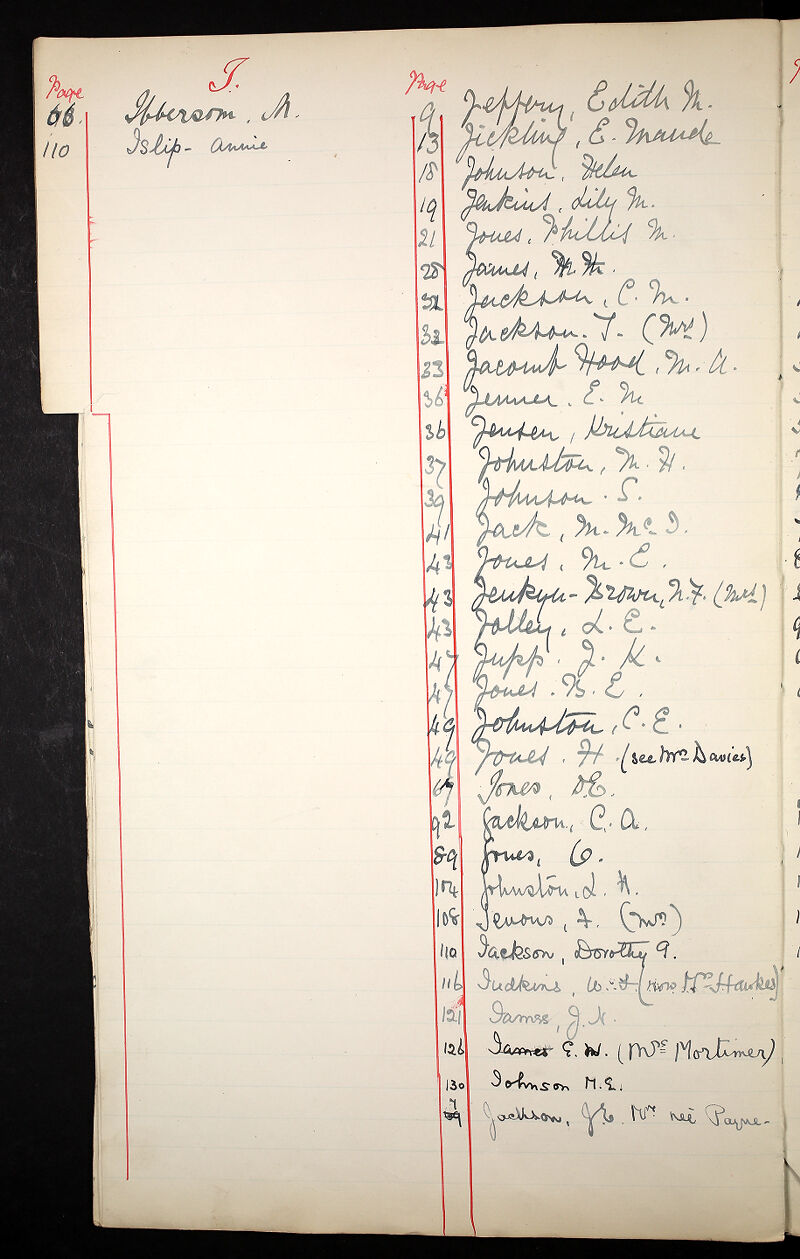 Page I.
66. Ibbersom, M.
110 Islip - Annie
Page
9 Jeffery, Edith M.
13 Jickling, E. Maude
18 Johnson, Helen
19 Jenkins, Lily M.
21 Jones, Phillis M.
28 James,
32 Jackson, C. M.
32 Jackson. T. (Mrs)
33 Jacomb Hood, M. A.
36 Jenner. E. M
36 Jensen, Kristiane
37 Johnston, M. H.
39 Johnson. S.
41 Jack, M. Mc. I.
43 Jones, M. E.
43 Jenkyn-Brown, N. F. (Mrs)
43 Jolley, L. E.
47 Jupp. J. K.
47 Jones. B. E.
49 Johnston, C. E.
49 Jones. H. (see Mrs Davies)
Jones, D.E.
92 Jackson, C. A.
89 Jones, O.
104 Johnston, L. H.
108 Jevons, F. (Mrs)
110 Jackson, Dorothy G.
116 Judkins, W. F. (now Mrs Hawkes)
121 James, J. N.
126 James E. W. (Mrs Mortimer)
130 Johnson M. E.
7
69 Jackson, J.E. Mrs neé Payne-